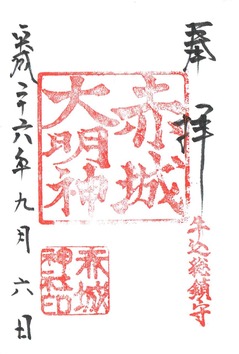 奉拝
牛込総鎮守
赤城
大明神
赤城
神社印
平成二十六年九月六日